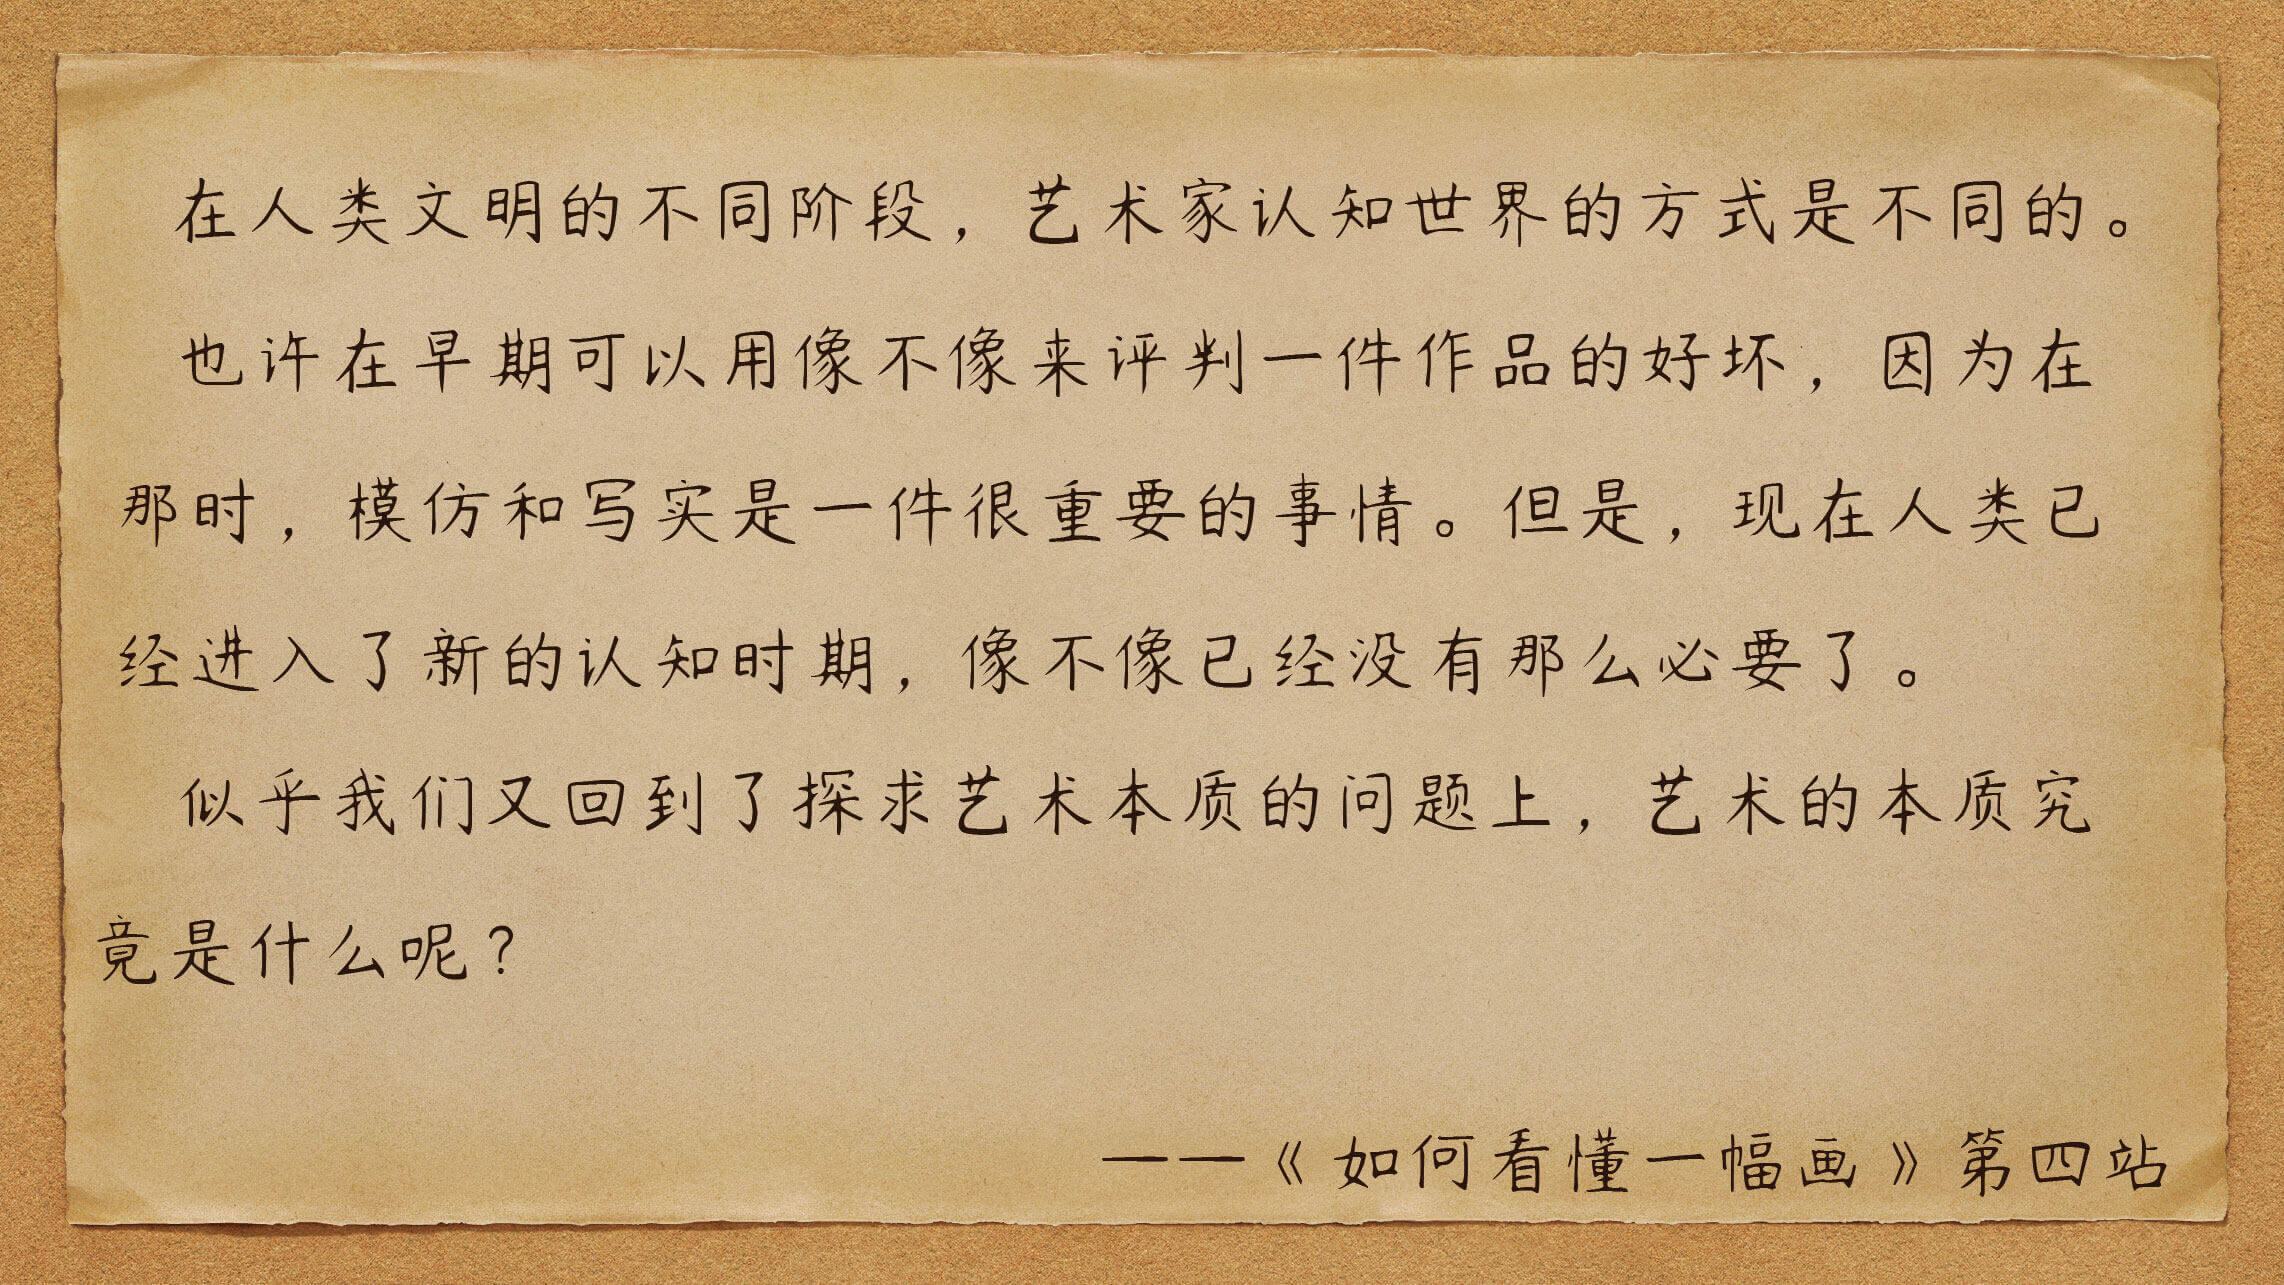 在人类文明的不同阶段，艺术家认知世界的方式是不同的。
也许在早期可以用像不像来评判一件作品的好坏，因为在
那时，模仿和写实是一件很重要的事情。但是，现在人类已
经进入了新的认知时期，像不像已经没有那么必要了。
似乎我们又回到了探求艺术本质的问题上，艺术的本质究
竟是什么呢？
——《如何看懂一幅画》第四站